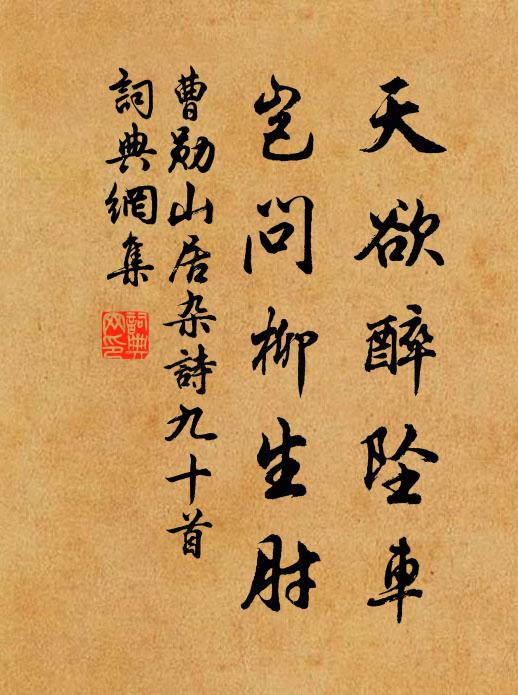 天欲醉坠車
岂問柳生肘
曹勛山居杂詩九十首
詞典網集
詞典
网印